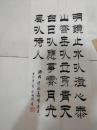 明鏡止水以澄心泰
山喬岳以立身青天
白日以應事霽月光
風以待人